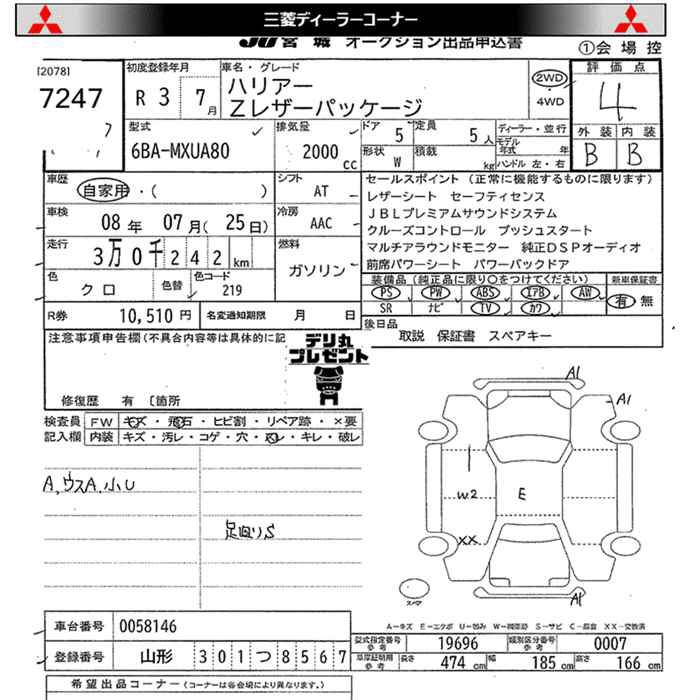 三菱ディーラーコーナー
JU宮城 オークション出品申込書
①会場控
[2078]
7247
初度登録年月
R 3 7月
車名・グレード
ハリアー
Zレザーパッケージ
2WD
・4WD
評価点
4
外装 内装
B B
型式
6BA-MXUA80
排気量
2000 cc
ドア 5
定員 5人
形状 W
積載 kg
ディーラー・並行
モデル年式 年
ハンドル 左・右
車歴
自家用・( )
シフト
AT
車検
08年 07月(25日)
冷房
AAC
走行
3万0千242km
燃料
ガソリン
色
クロ
色替
色コード
219
R券 10,510円
名変通知期限 月 日
セールスポイント (正常に機能するものに限ります)
レザーシート セーフティセンス
JBLプレミアムサウンドシステム
クルーズコントロール プッシュスタート
マルチアラウンドモニター 純正DSPオーディオ
前席パワーシート パワーバックドア
装備品(純正品に限り○をつけてください)
新車保証書
PS PW ABS エアB AW
SR ナビ TV カワ
有 無
後日品
取説 保証書 スペアキー
注意事項申告欄(不具合内容等は具体的に記
デリ丸
プレゼント
修復歴 有 〔箇所
検査員
記入欄
FW キズ・飛石・ヒビ割・リペア跡・×要
内装 キズ・汚レ・コゲ・穴・スレ・キレ・破レ
A,ウスA,小U
足回りS
A1
A1
W2
E
XX
A1
スペア
A−キズ E−エクボ U−凹み W−補修跡 S−サビ C−腐食 XX−交換済
車台番号 0058146
登録番号 山形 301つ8567
型式指定番号
参考
19696
類別区分番号
参考
0007
車庫証明用
参考
長さ 474cm 幅 185cm 高さ 166cm
希望出品コーナー(コーナーは各会場により異なります。)